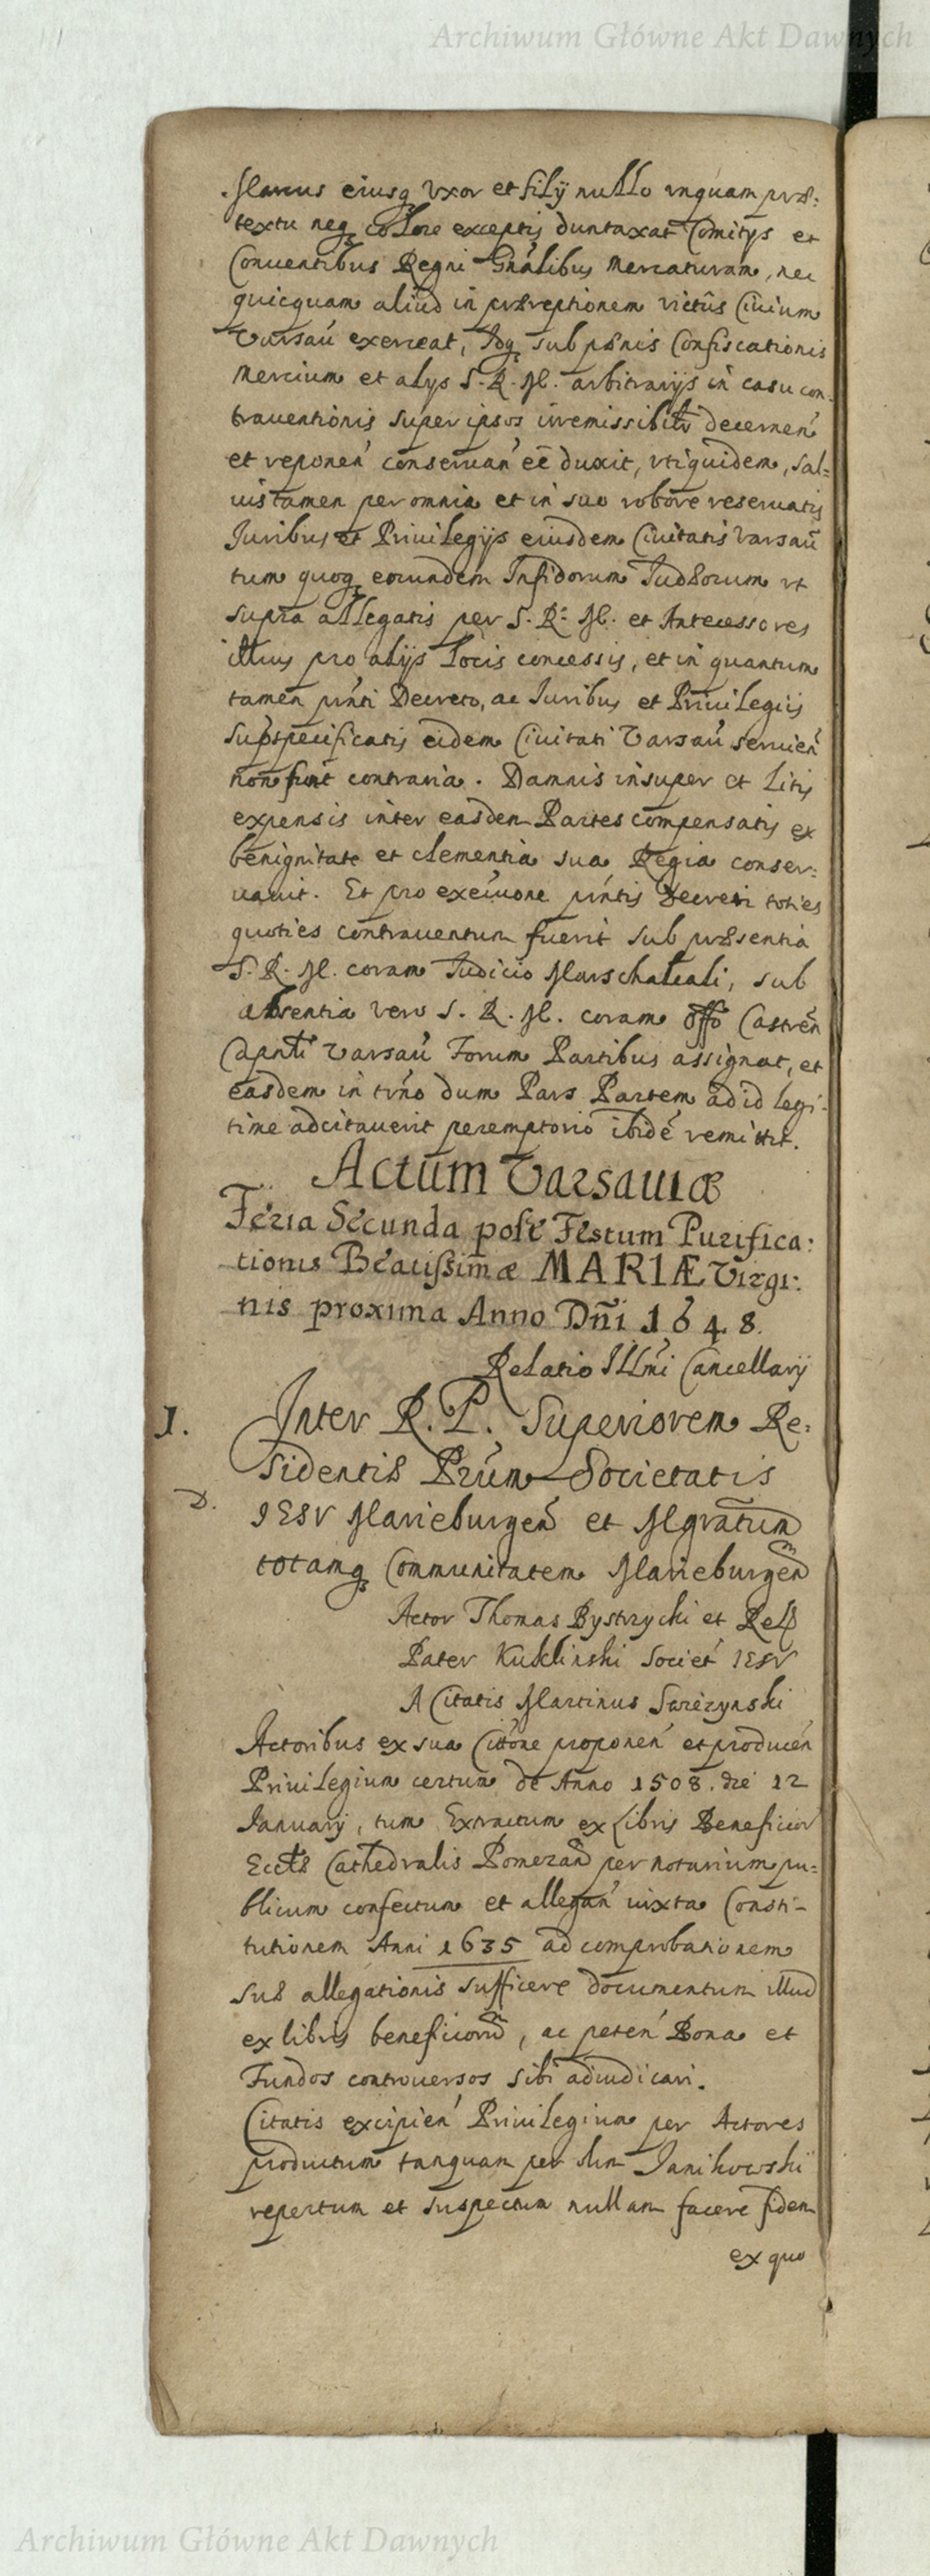 Archiwum Główne Akt Dawnych
Marcus eiusq Vxor et filÿ nullo vnquam præ:
textu neq colore exceptis duntaxat Comitys et
Conuentibus Regni Gnâlibus mercaturam, nec
quicquam aliud in præreptionem victûs Ciuium
Varsaũ exerceat, Idq sub pœnis Confiscationis
mercium et alys S. R. M. arbitrarÿs in casu con-
trauentionis super ipsos irremissibilr decernen
et reponen conseruan eē duxit, vti quidem, Sal=
uis tamen per omnia et in suo robore reseruatis
Iuribus et Priuilegÿs eiusdem Ciuitatis Varsaũ
tum quoq eorundem Infidorum Iudæorum vt
supra allegatis per S. R. M. et Antecessores
illius pro alÿs locis concessis, et in quantum
tamen pnti Decreto, ac Iuribus et Priuilegiis
supspecificatis eidem Ciuitati Varsaũ seruien
non sunt contraria. Damnis insuper et Litis
expensis inter easdem Partes compensatis ex
benignitate et clementia sua Regia conser:
uauit. Et pro exećuone pńtis Decreti toties
quoties contrauentum fuerit sub præsentia
S. R. M. coram Iudicio Marschalcali, sub
absentia vero S. R. M. coram offo Castreñ
Capntli Varsaũ Forum Partibus assignat, et
easdem in tr̃no dum Pars Partem ad id legi:
time adcitauerit peremptorio ibidē remittit.
Actum Varsauiæ
Feria Secunda post Festum Purifica:
tionis Beatissimæ MARIÆ Virgi:
nis proxima Anno Dn̄i 1648.
Relatio Illmi Cancellarÿ
1. Inter R. P. Superiorem Re:
sidentiæ Prũm Societatis
D. IESV Marieburgeñ et Mgratum
totamq Communitatem Marieburgeñ
Actor Thomas Bystrzycki et Rel
Pater Kuklinski Societ IESV
A Citatis Martinus Swiezynski
Actoribus ex sua Cittõne proponeń et produceń
Priuilegium certum de Anno 1508. die 12
Ianuarÿ, tum Extractum ex Libris Beneficior
Ecclæ Cathedralis Pomezañ per notarium pu=
blicum confectum et allegań iuxta Consti-
tutionem Anni 1635 ad comprobationem
suæ allegationis sufficere documentum illud
ex libris beneficiorũ, ac peteń Bona et
Fundos controuersos sibi adiudicari.
Citatis excipień Priuilegium per Actores
productum tanquam per olim Ianikowski
repertum et suspectum nullam facere fidem
ex quo
Archiwum Główne Akt Dawnych